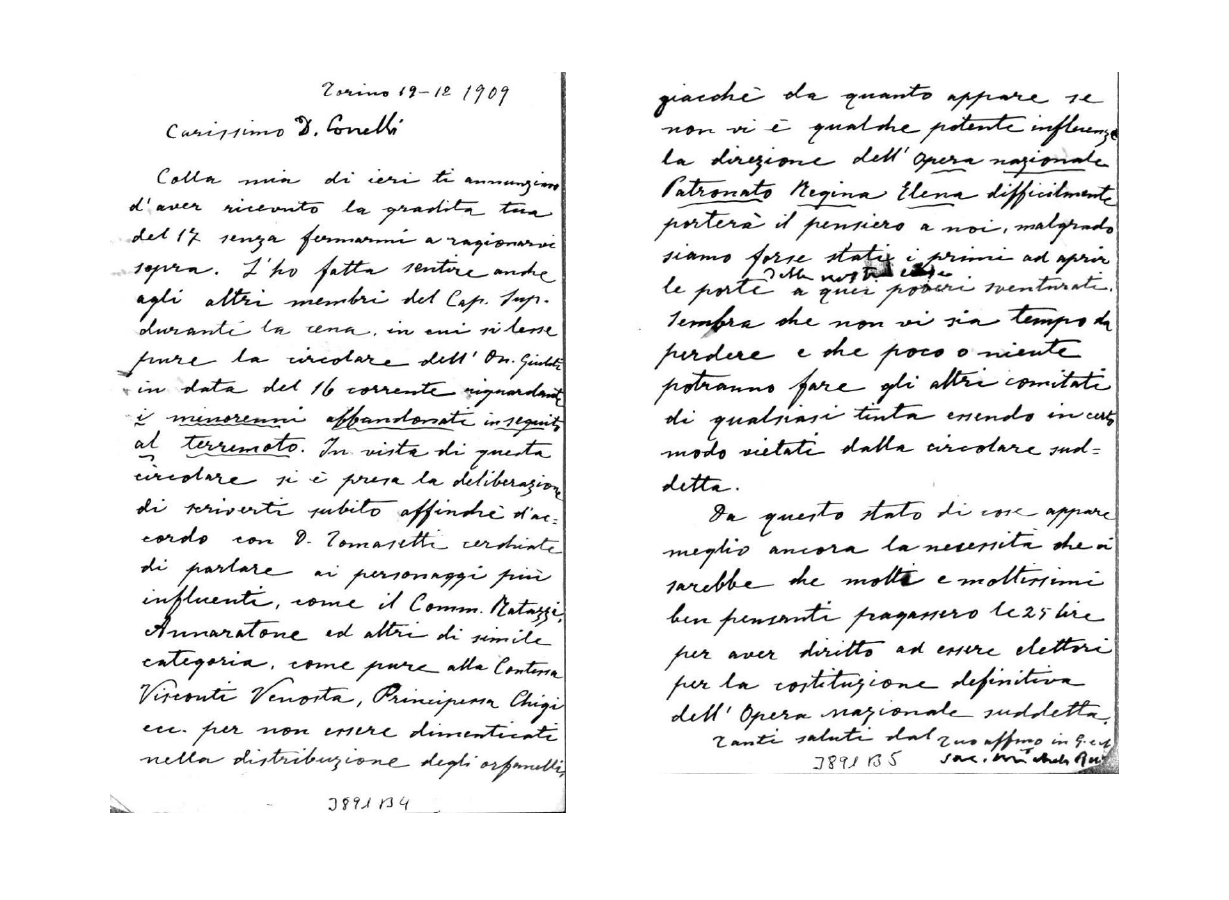 Torino 19-12 1909
Carissimo D. Conelli
Colla mia di ieri ti annunziavo
d'aver ricevuto la gradita tua
del 17 senza fermarmi a ragionarvi
sopra. L'ho fatta sentire anche
agli altri membri del Cap. Sup.
durante la cena, in cui si lesse
pure la circolare dell' On.
in data del 16 corrente riguardante
i minorenni abbandonati in seguito
al terremoto. In vista di questa
circolare si è presa la deliberazione
di scriverti subito affinchè d'ac=
cordo con D. Tomasetti cerchiate
di parlare ai personaggi più
influenti, come il Comm. Ratazzi,
Annaratone ed altri di simile
categoria, come pure alla Contessa
Visconti Venosta, Principessa Chigi
ecc. per non essere dimenticati
nella distribuzione degli orfanelli,
J891 B4
giacchè da quanto appare se
non vi è qualche potente influenza
la direzione dell' Opera nazionale
Patronato Regina Elena difficilmente
porterà il pensiero a noi, malgrado
siamo forse stati i primi ad aprir
delle nostre case
le porte a quei poveri sventurati.
Sembra che non vi sia tempo da
perdere e che poco o niente
potranno fare gli altri comitati
di qualsiasi tinta essendo in certo
modo vietati dalla circolare sud=
detta.
Da questo stato di cose appare
meglio ancora la necessità che ci
sarebbe che molti e moltissimi
ben pensanti pagassero le 25 lire
per aver diritto ad essere elettori
per la costituzione definitiva
dell' Opera nazionale suddetta.
Tanti saluti dal Tuo affmo in G. e
Sac. Michele Rua
J891 B5